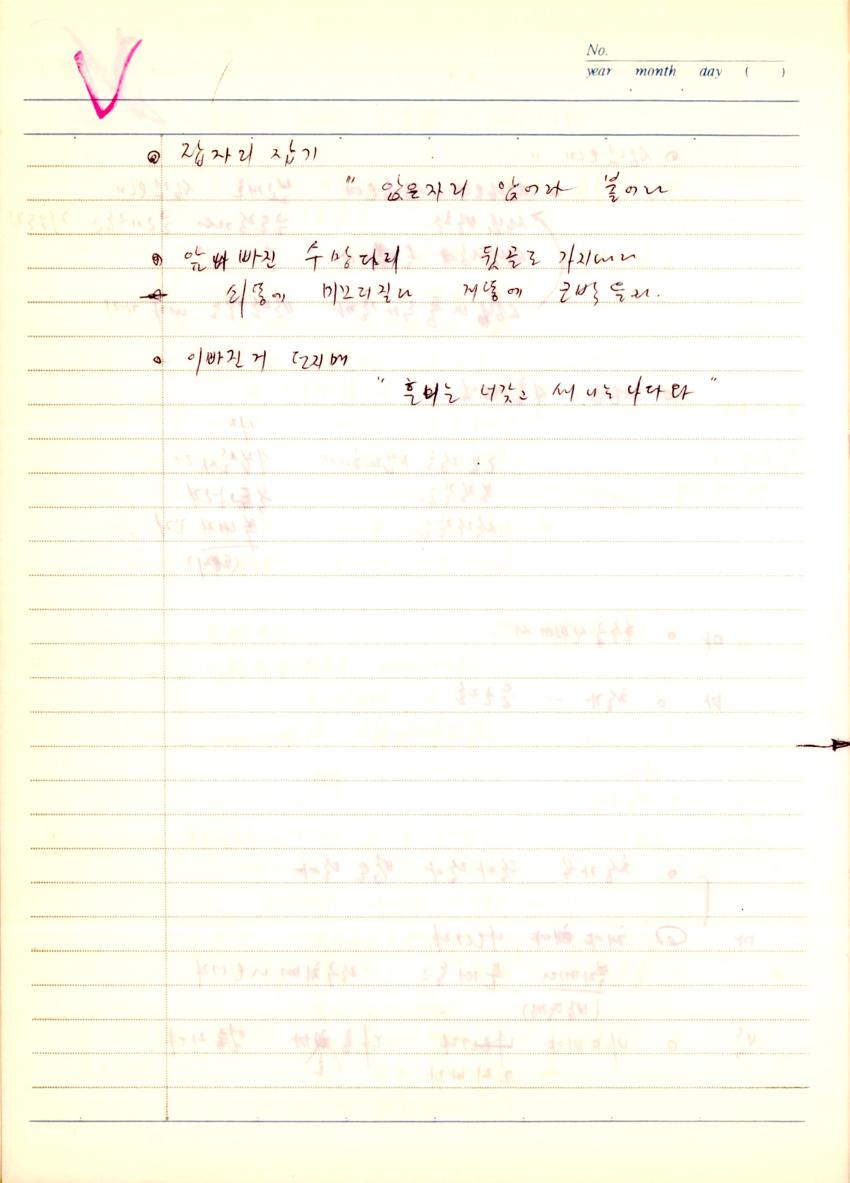 No.
year month day ( )
잠자리 잡기
" 앉은자리 앉어라 붙어라
앞빠 빠진 수망다리 뒷골로 가지마라
쇠똥에 미끄러질라 개똥에 코박을라.
이빠진거 던지며
" 헌 이는 너갖고 새 이는 나다와 "